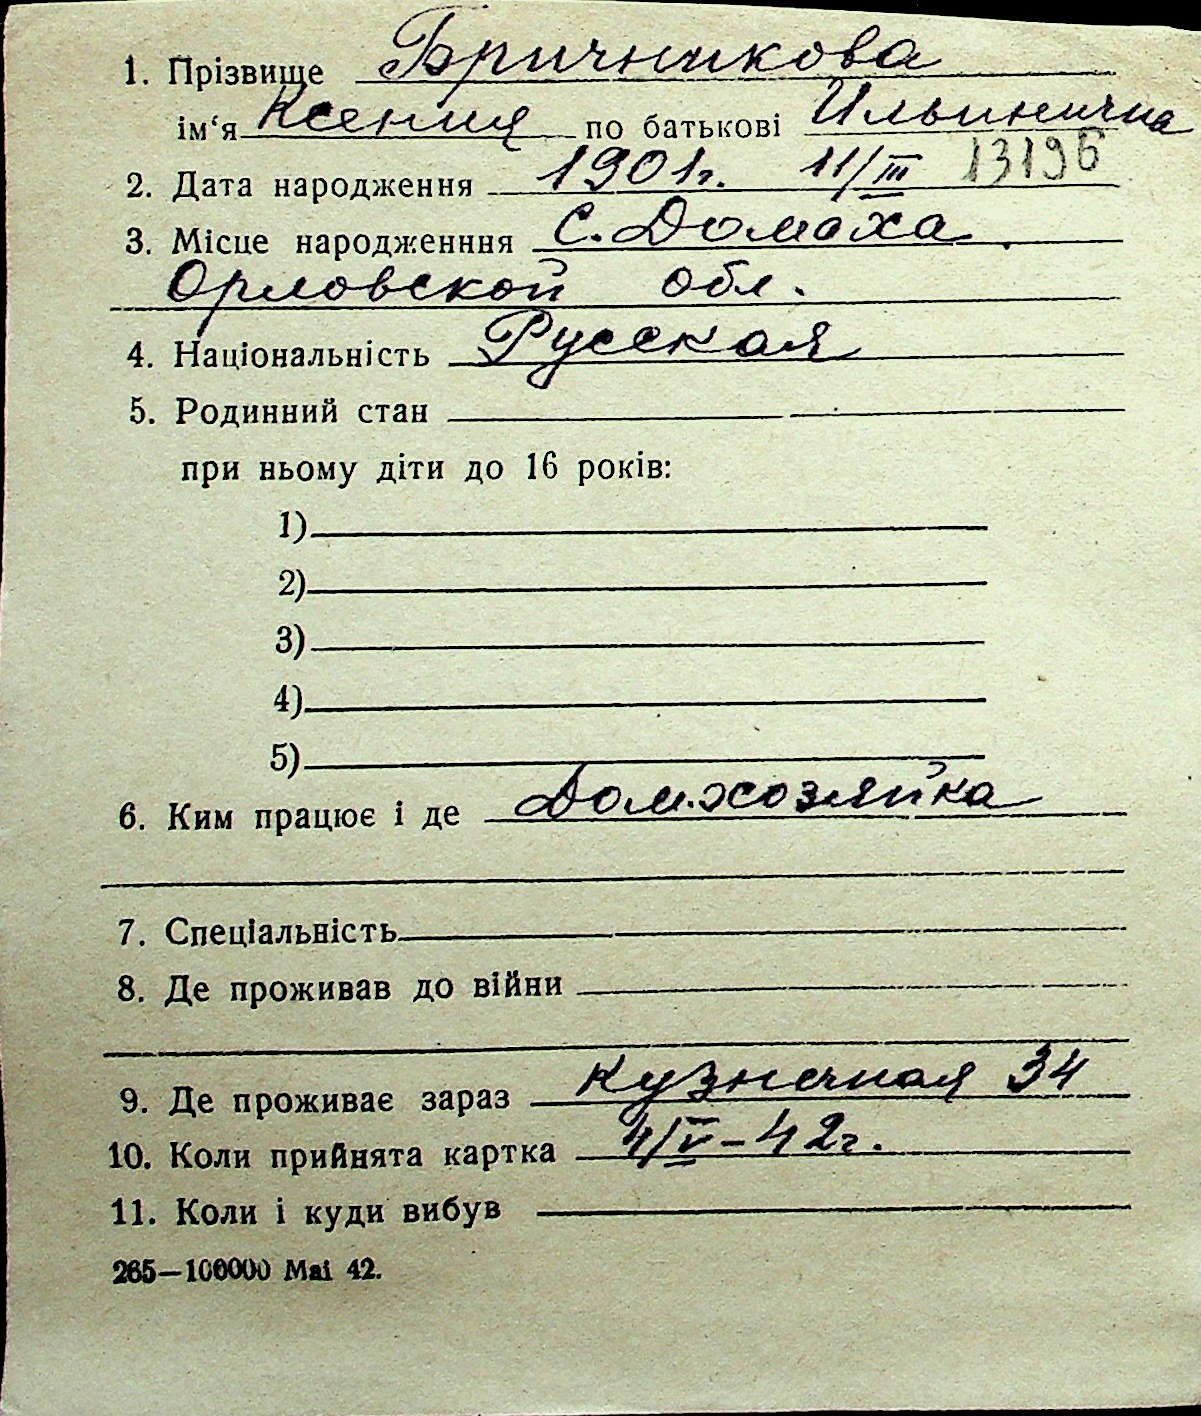 1. Прізвище Бричникова
ім‘я Ксения по батькові Ильинична
2. Дата народження 1901г. 11/III 13196
3. Місце народженння с. Домаха
Орловской обл.
4. Національність Русская
5. Родинний стан
при ньому діти до 16 років:
1)
2)
3)
4)
5)
6. Ким працює і де Домхозяйка
7. Спеціальність
8. Де проживав до війни
9. Де проживає зараз Кузнечная 34
10. Коли прийнята картка 4/V-42г.
11. Коли і куди вибув
265—100000 Mai 42.